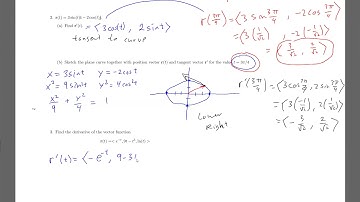 2. r(t) = 3 sin(t)i − 2 cos(t)j
(a) Find r'(t). = ⟨3cos(t), 2 sint⟩
tangent to curve
(b) Sketch the plane curve together with position vector r(t) and tangent vector r' for the value t = 3π/4
x = 3sint y = -2cost
x² = 9sin²t y² = 4cos²t
x²/9 + y²/4 = 1
Lower
Right
r(3π/4) = ⟨3 sin 3π/4, -2 cos 3π/4⟩
= ⟨3(1/√2), -2(-1/√2)⟩
⟨3/√2, 2/√2⟩
r'(3π/4) = ⟨3cos 3π/4, 2sin 3π/4⟩
= ⟨3(-1/√2), 2(1/√2)⟩
= ⟨-3/√2, 2/√2⟩
3. Find the derivative of the vector function
r'(t) = ⟨-e^-t, 9-3t